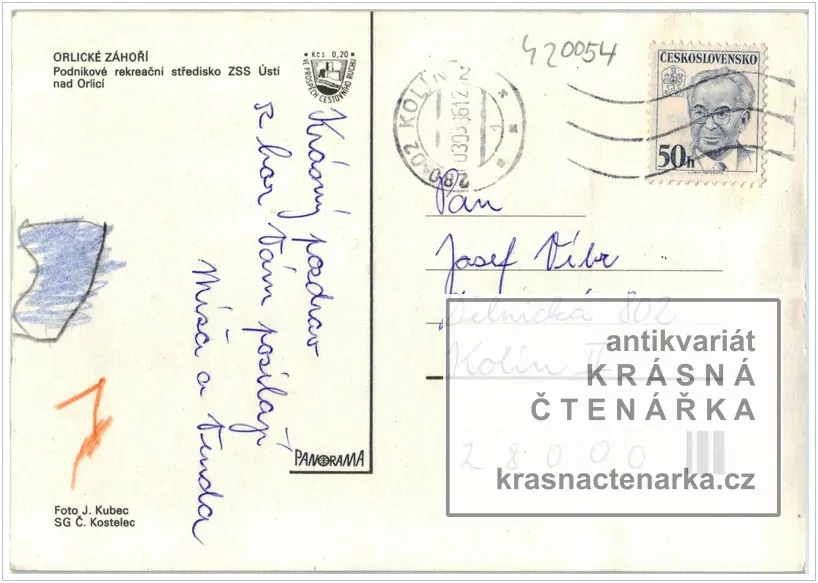 ORLICKÉ ZÁHOŘÍ
Podnikové rekreační středisko ZSS Ústí
nad Orlicí
Kčs 0,20
VE PROSPĚCH CESTOVNÍHO RUCHU
Krásný pozdrav
z hor Vám posílají
Míša a Venda
PANORAMA
Foto J. Kubec
SG Č. Kostelec
420054
280 02 KOLÍN
1
ČESKOSLOVENSKO
50h
Pan
Josef Víbr
Dělnická 802
Kolín
28000
antikvariát
KRÁSNÁ
ČTENÁŘKA
krasnactenarka.cz